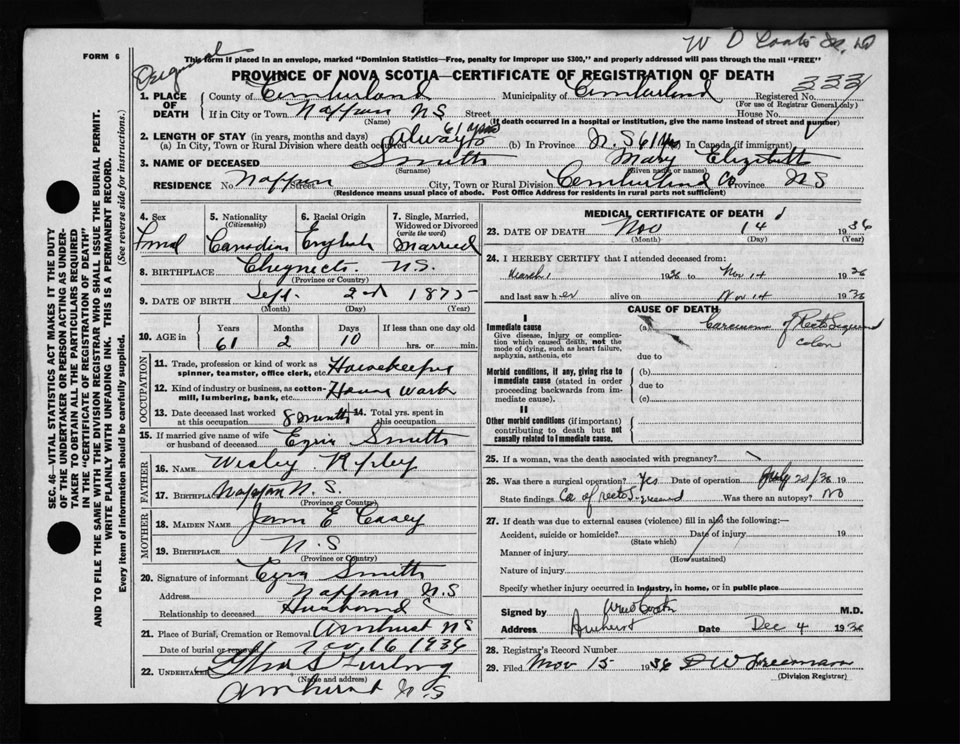 FORM 6
Original
This form if placed in an envelope, marked "Dominion Statistics—Free, penalty for improper use $300," and properly addressed will pass through the mail "FREE"
PROVINCE OF NOVA SCOTIA—CERTIFICATE OF REGISTRATION OF DEATH
333
1. PLACE OF DEATH
County of Cumberland Municipality of Cumberland Registered No.
(For use of Registrar General only)
If in City or Town Nappan NS Street House No.
(Name) (If death occurred in a hospital or institution, give the name instead of street and number)
2. LENGTH OF STAY (in years, months and days)
(a) In City, Town or Rural Division where death occurred Always 61 years (b) In Province N.S 61 In Canada (if immigrant)
3. NAME OF DECEASED Smith Mary Elizabeth
(Surname) (Given name or names)
RESIDENCE No. Nappan Street City, Town or Rural Division Cumberland Co Province NS
(Residence means usual place of abode. Post Office Address for residents in rural parts not sufficient)
4. Sex 5. Nationality (Citizenship) 6. Racial Origin 7. Single, Married, Widowed or Divorced (write the word)
Canadian English Married
8. BIRTHPLACE N.S.
(Province or Country)
9. DATE OF BIRTH Sept. 2nd 1875
(Month) (Day) (Year)
10. AGE in Years Months Days If less than one day old
61 2 10 hrs. or min.
OCCUPATION
11. Trade, profession or kind of work as spinner, teamster, office clerk, etc. Housekeeper
12. Kind of industry or business, as cotton-mill, lumbering, bank, etc. House work
13. Date deceased last worked at this occupation 8 months 14. Total yrs. spent in this occupation
15. If married give name of wife or husband of deceased Ezra Smith
FATHER
16. Name Wesley Ripley
17. Birthplace Nappan N.S.
(Province or Country)
MOTHER
18. MAIDEN NAME E
19. BIRTHPLACE N.S
(Province or Country)
20. Signature of informant Ezra Smith
Address Nappan N.S
Relationship to deceased Husband
21. Place of Burial, Cremation or Removal Amherst NS
Date of burial or removal Nov 16 1936
22. UNDERTAKER
(Name and address)
Amherst N.S
MEDICAL CERTIFICATE OF DEATH
23. DATE OF DEATH Nov 14 1936
(Month) (Day) (Year)
24. I HEREBY CERTIFY that I attended deceased from:
March 1 1936 to Nov 14 1936
and last saw her alive on Nov 14 1936
CAUSE OF DEATH
I
Immediate cause
Give disease, injury or complication which caused death, not the mode of dying, such as heart failure, asphyxia, asthenia, etc
(a) Carcinoma of Recto Sigmoid colon
due to
Morbid conditions, if any, giving rise to immediate cause (stated in order proceeding backwards from immediate cause).
(b)
due to
(c)
II
Other morbid conditions (if important) contributing to death but not causally related to immediate cause.
25. If a woman, was the death associated with pregnancy?
26. Was there a surgical operation? Yes Date of operation July 20/36 19
State findings Ca of recto Sigmoid Was there an autopsy? No
27. If death was due to external causes (violence) fill in also the following:—
Accident, suicide or homicide? Date of injury 19
(State which)
Manner of injury
(How sustained)
Nature of injury
Specify whether injury occurred in industry, in home, or in public place
Signed by M.D.
Address Amherst Date Dec 4 1936
28. Registrar's Record Number
29. Filed Nov 15 1936 D W Freeman
(Division Registrar)
SEC. 46—VITAL STATISTICS ACT MAKES IT THE DUTY
OF THE UNDERTAKER OR PERSON ACTING AS UNDER-
TAKER TO OBTAIN ALL THE PARTICULARS REQUIRED
IN THE "CERTIFICATE OF REGISTRATION OF DEATH"
AND TO FILE THE SAME WITH THE DIVISION REGISTRAR WHO SHALL ISSUE THE BURIAL PERMIT.
WRITE PLAINLY WITH UNFADING INK. THIS IS A PERMANENT RECORD.
Every item of information should be carefully supplied. (See reverse side for instructions.)